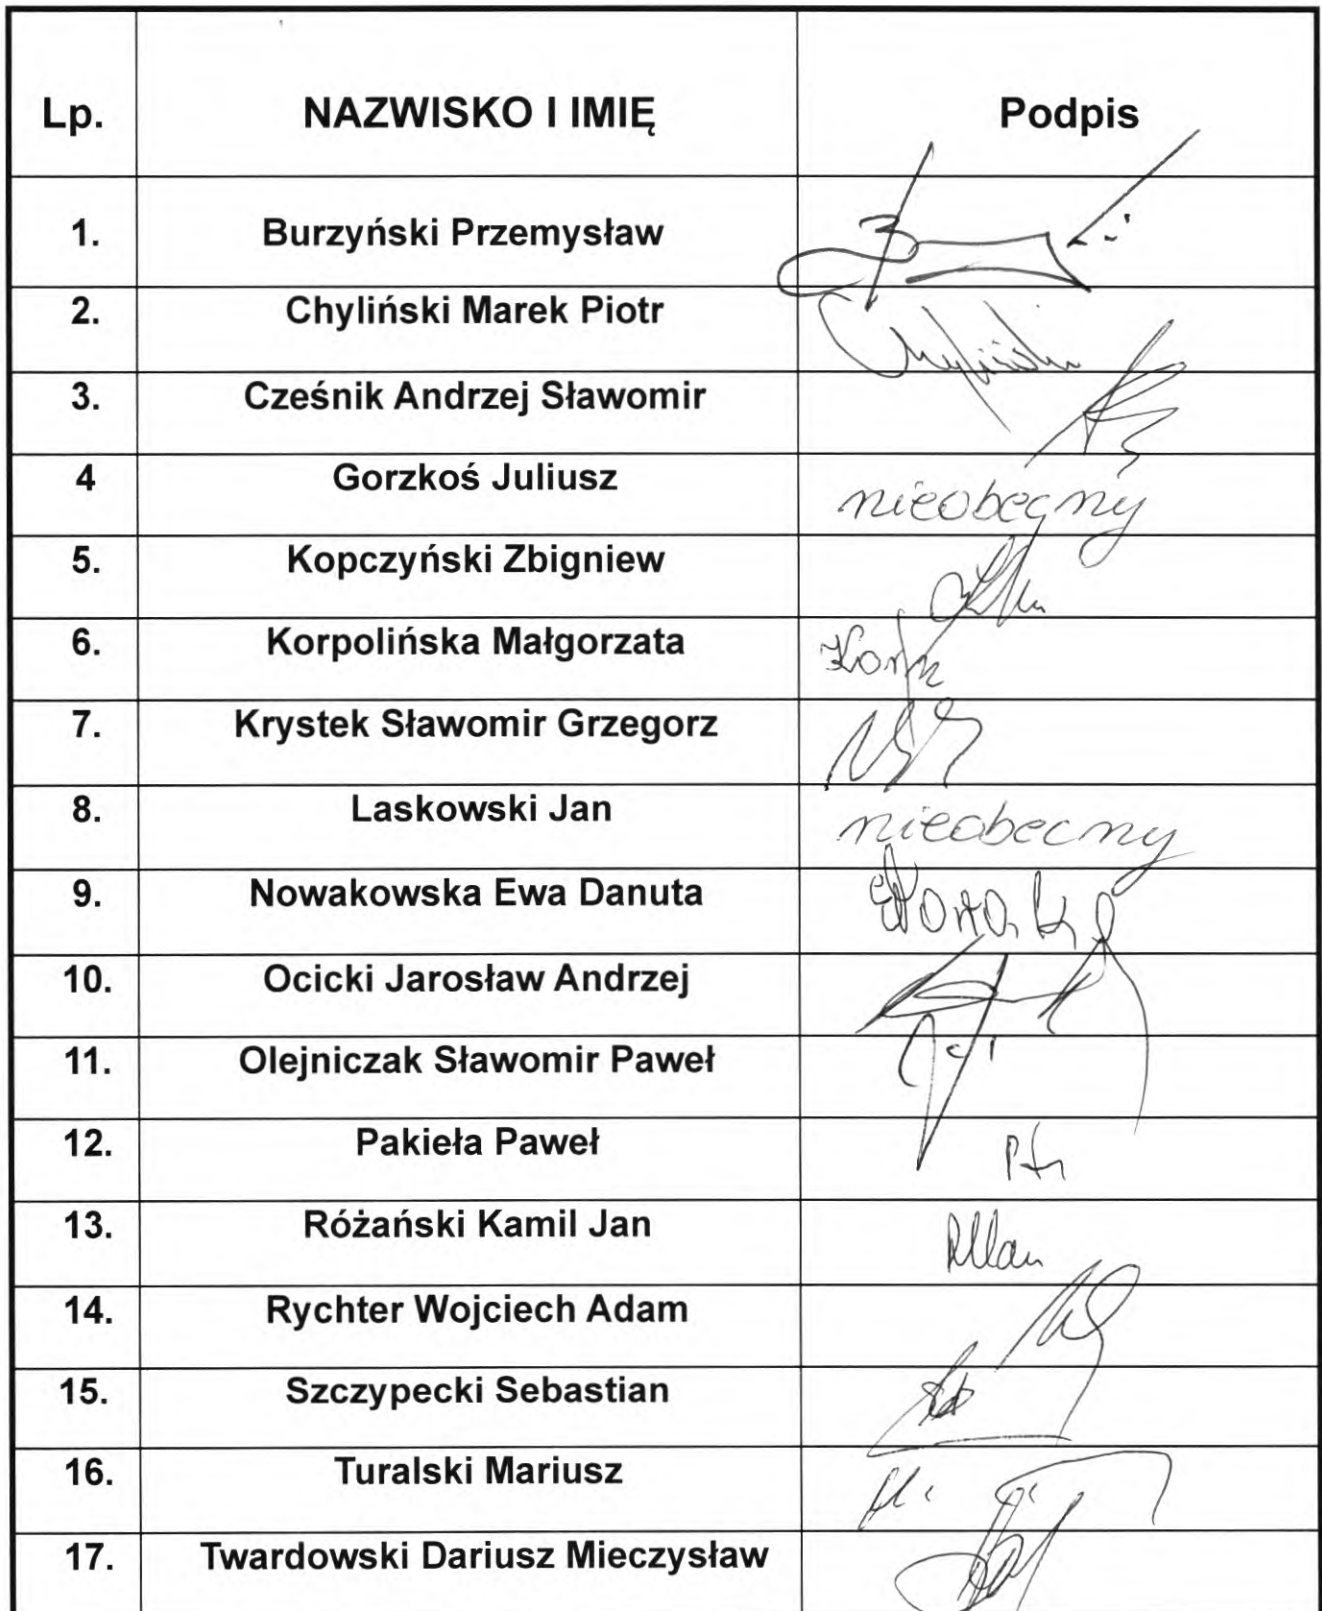 Lp. NAZWISKO I IMIĘ Podpis
1. Burzyński Przemysław
2. Chyliński Marek Piotr
3. Cześnik Andrzej Sławomir
4 Gorzkoś Juliusz nieobecny
5. Kopczyński Zbigniew
6. Korpolińska Małgorzata
7. Krystek Sławomir Grzegorz
8. Laskowski Jan nieobecny
9. Nowakowska Ewa Danuta
10. Ocicki Jarosław Andrzej
11. Olejniczak Sławomir Paweł
12. Pakieła Paweł
13. Różański Kamil Jan
14. Rychter Wojciech Adam
15. Szczypecki Sebastian
16. Turalski Mariusz
17. Twardowski Dariusz Mieczysław